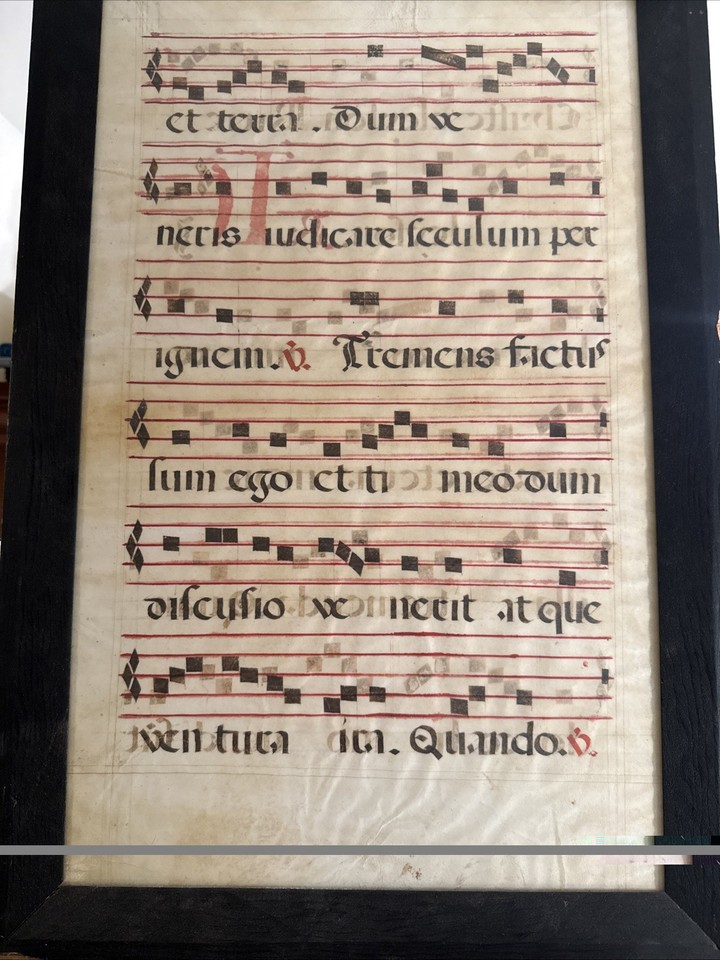 et terra . Dum ve
neris iudicare seculum per
ignem. ℣. Tremens factus
sum ego et ti meo dum
discusio ve nerit atque
ventura ira. Quando. ℣.